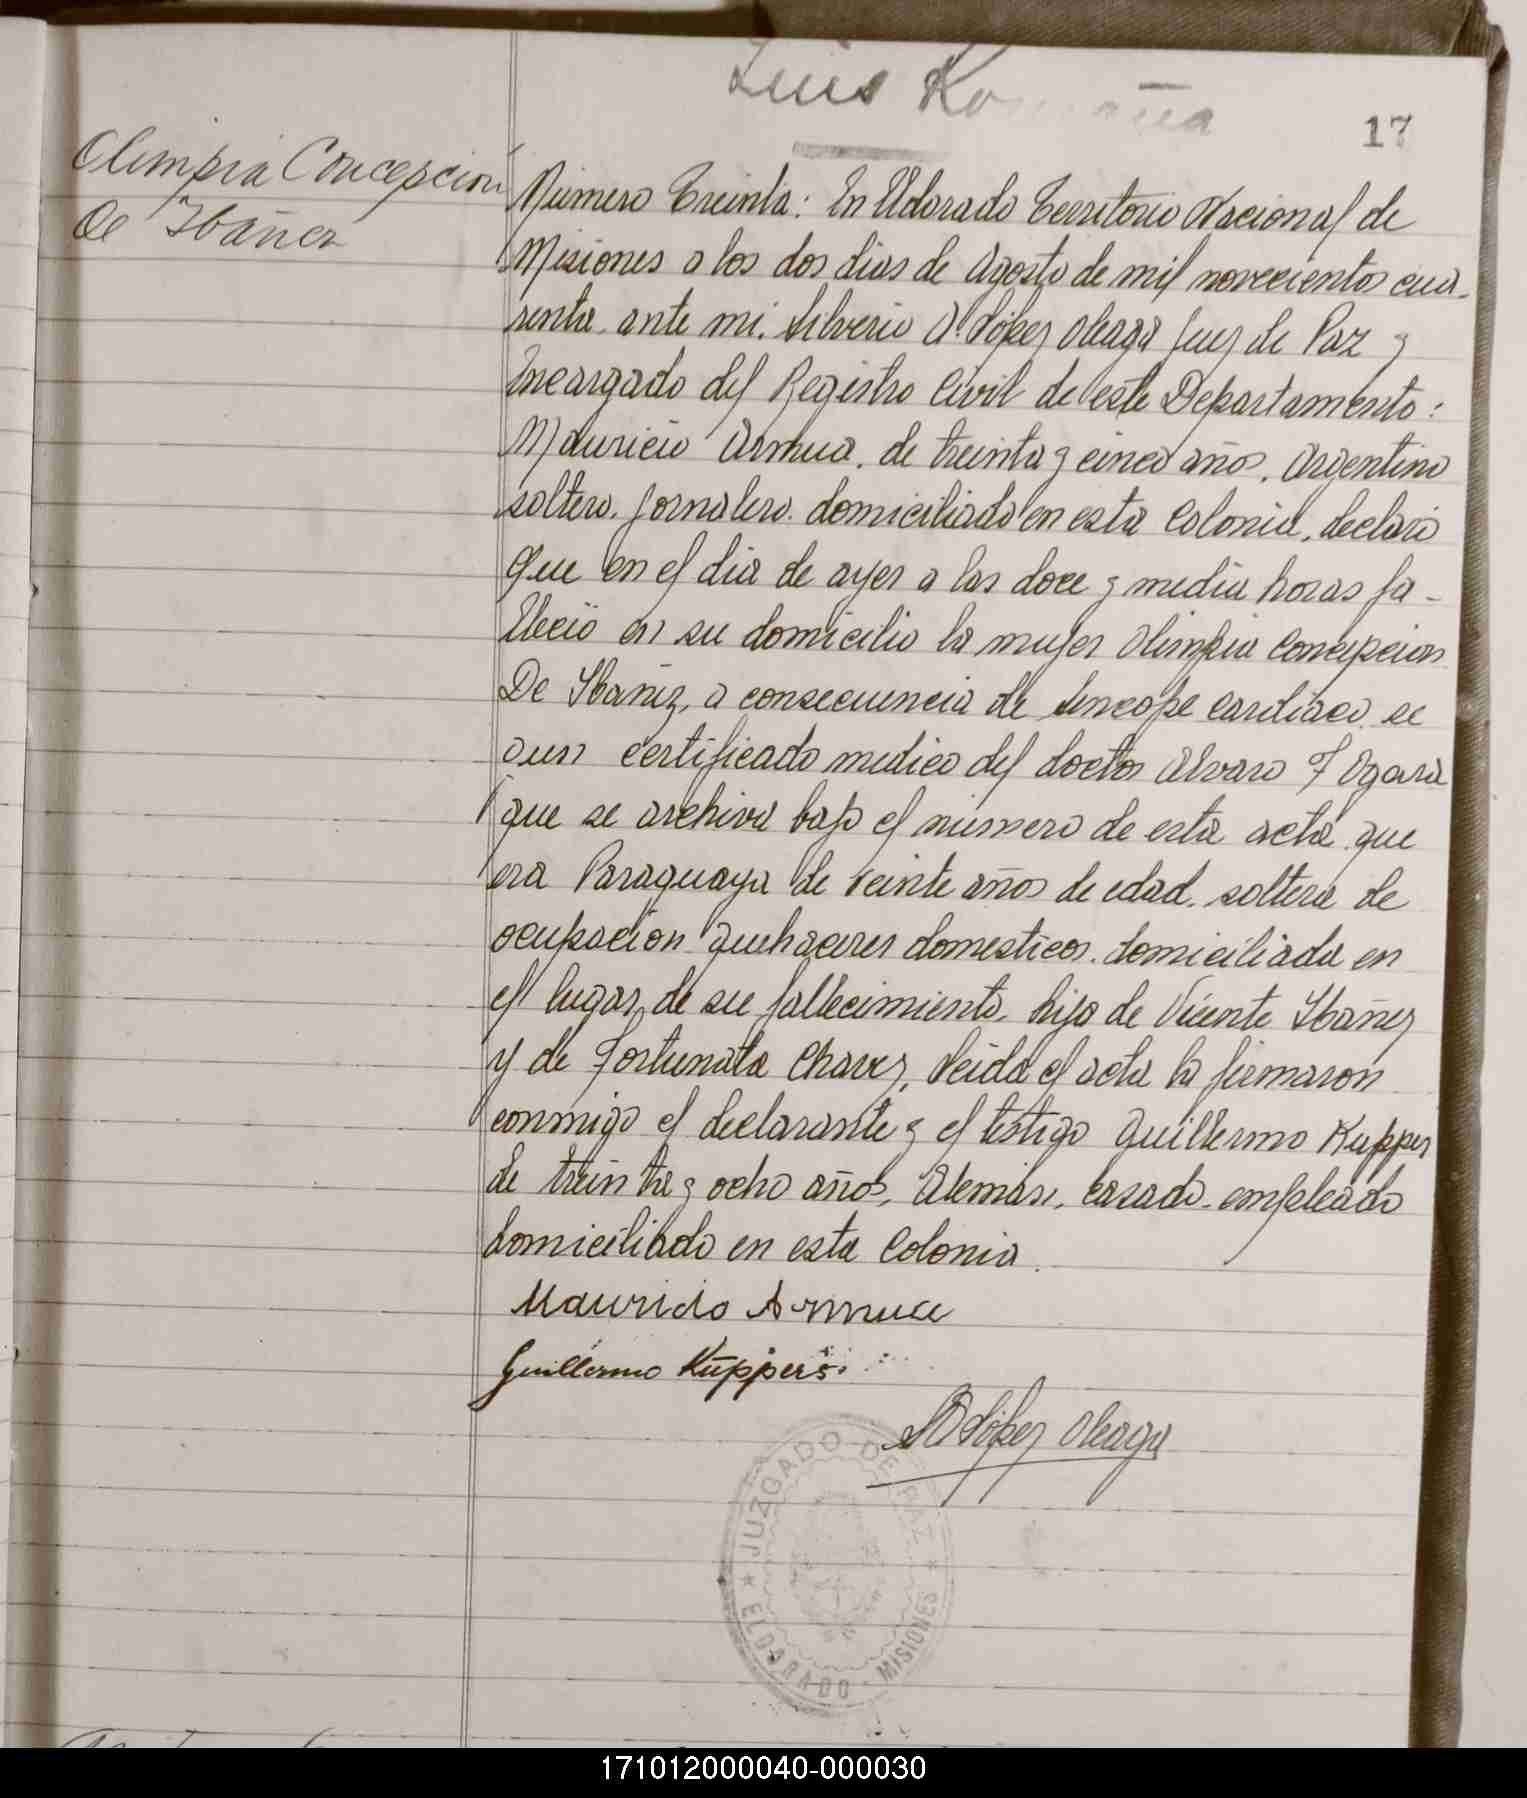 Luis
17
Olimpia Concepcion
De Ibañez
Número Treinta: En Eldorado Territorio Nacional de
Misiones a los dos dias de Agosto de mil novecientos cua-
renta. ante mi. Silverio A. López Oleaga Juez de Paz y
Encargado del Registro Civil de este Departamento:
Mauricio Armua. de treinta y cinco años. Argentino
soltero. jornalero. domiciliado en esta Colonia. declaró
Que en el dia de ayer a las doce y media horas fa-
lleció en su domicilio la mujer Olimpia Concepcion
De Ibañez, a consecuencia de sincope cardiaco. se
gun certificado medico del doctor Alvaro F Ogara
que se archiva bajo el número de esta acta. que
era Paraguaya de veinte años de edad. soltera de
ocupacion quehaceres domesticos. domiciliada en
el lugar de su fallecimiento. hija de Vicente Ibañez
y de Fortunata Chavez, Leida el acta la firmaron
conmigo el declarante y el testigo Guillermo Kuppers
de treinta y ocho años, Aleman, casado. empleado
domiciliado en esta Colonia.
Mauricio Armua
Guillermo Küppers.
SA López Oleaga
JUZGADO DE PAZ
ELDORADO - MISIONES
171012000040-000030